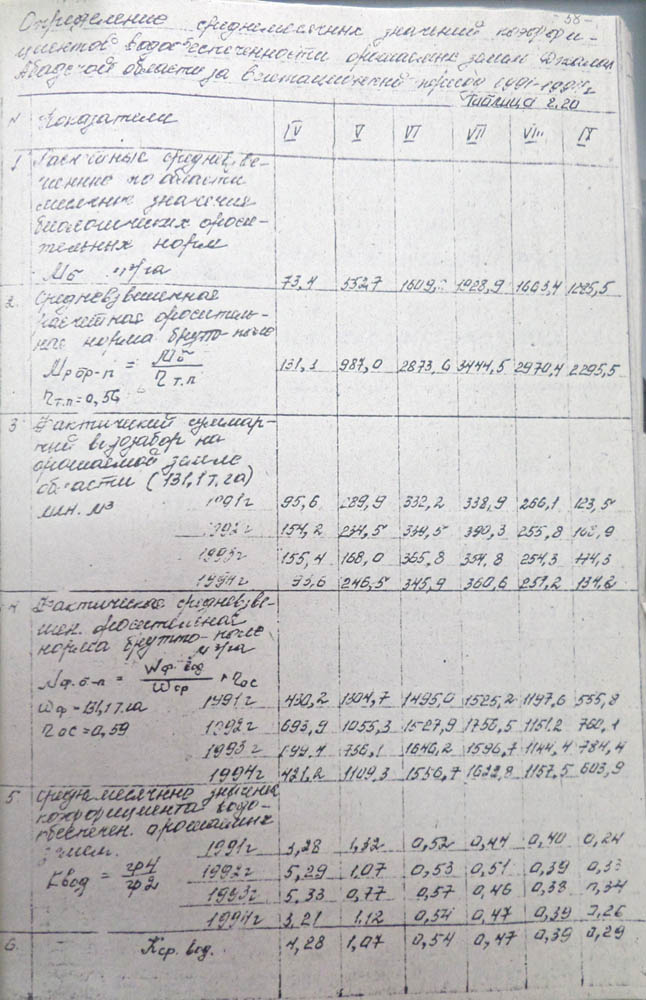 - 58 -
Определение среднемесячных значений коэффи-
циентов водообеспеченности орошаемых земель Джалал-
Абадской области за вегетационный период 1991-1994г.
Таблица 2.20
N Показатели IV V VI VII VIII IX
1 Расчетные средневзве-
шенные по области
месячные значения
биологических ороси-
тельных норм
Мб м³/га 73,4 552,7 1609, 1928,9 1663,4 1285,5
2. Средневзвешенная
расчетная ороситель-
ная норма брутто-поле
Мр бр-п = Мб / ηт.п 131,1 987,0 2873,6 3444,5 2970,4 2295,5
ηт.п=0,56
3 Фактический суммар-
ный водозабор на
орошаемой земле
области (131,1т.га)
млн. м³ 1991г 95,6 289,9 332,2 338,9 266,1 123,5
1992г 154,2 234,5 339,5 390,3 255,8 168,9
1993г 155,4 168,0 365,8 354,8 254,3 174,3
1994г 93,6 246,5 345,9 360,6 257,2 134,2
4 Фактическая средневзве-
шен. оросительная
норма брутто-поле
м³/га
Мф.б-п = Wф. вод / Wор · ηос
Wф=131,1т.га 1991г 430,2 1304,7 1495,0 1525,2 1197,6 555,8
ηос=0,59 1992г 693,9 1055,3 1527,9 1756,5 1151,2 760,1
1993г 699,4 756,1 1646,2 1596,7 1144,4 784,4
1994г 421,2 1109,3 1556,7 1622,8 1157,5 603,9
5 Среднемесячные значения
коэффициента водо-
обеспечен. орошаемых
земель. 1991г 3,28 1,32 0,52 0,44 0,40 0,24
Квод = гр4 / гр2 1992г 5,29 1,07 0,53 0,51 0,39 0,33
1993г 5,33 0,77 0,57 0,46 0,38 0,34
1994г 3,21 1,12 0,54 0,47 0,39 0,26
6. Кср. вод. 4,28 1,07 0,54 0,47 0,39 0,29